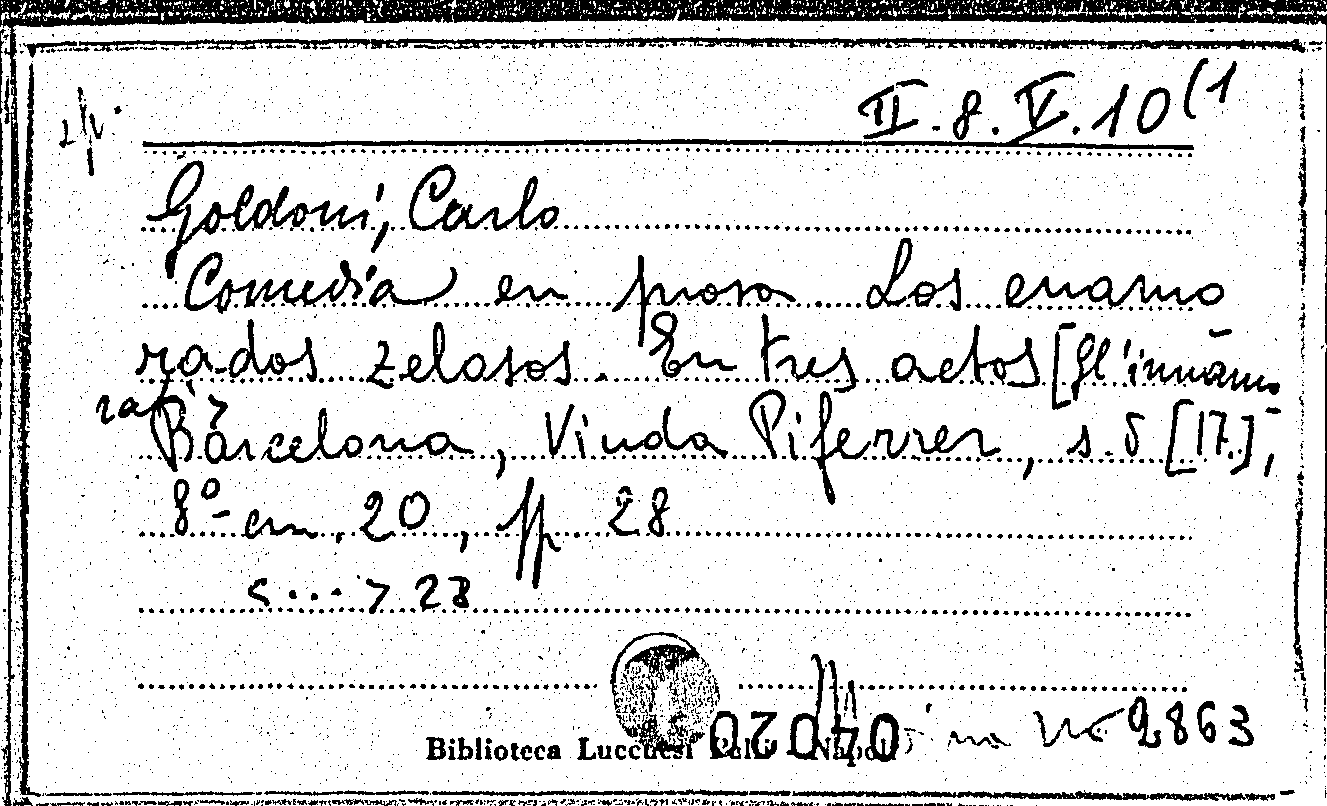 II.8.V.10(1
Goldoni, Carlo
Comedia en prosa. Los enamo
rados zelosos. En tres actos [Gl'innamo-
rati>
Barcelona, Viuda Piferrer, s.d [17..],
8º cm. 20, pp. 28
<...> 28
Biblioteca Lucchesi Palli - Napoli
04020
2863